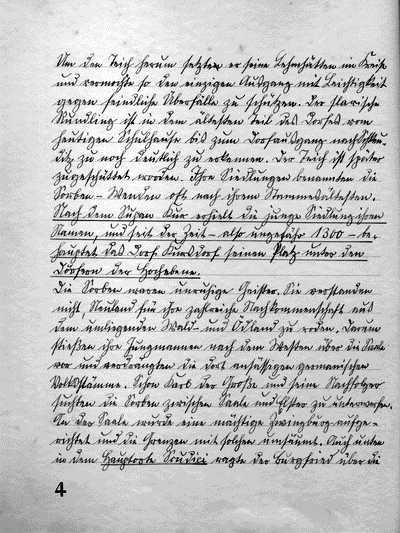 Um den Teich herum setzten er seine Lehmhütten im Kreise
und vermochte so den einzigen Ausgang mit Leichtigkeit
gegen feindliche Überfälle zu schützen. Der slavische
Rundling ist in dem ältesten Teil des Dorfes vom
heutigen Schulhause bis zum Dorfausgang nach
noch deutlich zu erkennen. Der Teich ist später
zugeschüttet worden. Ihre Siedlungen benannten die
Sorben-Wenden oft nach ihrem Stammesältesten.
Nach dem Kur erhielt die junge Siedlung ihren
Namen, und seit der Zeit - also ungefähr 1300 - be-
hauptet das Dorf seinen Platz unter den
Dörfern der Hochebene.
Die Sorben waren unruhige Geister. Sie verstanden
nicht Neuland für ihre zahlreiche Nachkommenschaft aus
dem umliegenden Wald- und Ödland zu roden. Darum
stießen ihre Jungmannen nach dem Westen über die Saale
vor und verdrängten die dort ansässigen germanischen
Volksstämme. Schon Karl der Große und seine Nachfolger
suchten die Sorben zwischen Saale und Elster zu unterwerfen.
An der Saale wurde eine mächtige Zwingburg aufge-
richtet und die Grenzen mit solchen umsäumt. Auch unten
in dem Hauptorte Scudici ragte der Burgfried über die
4